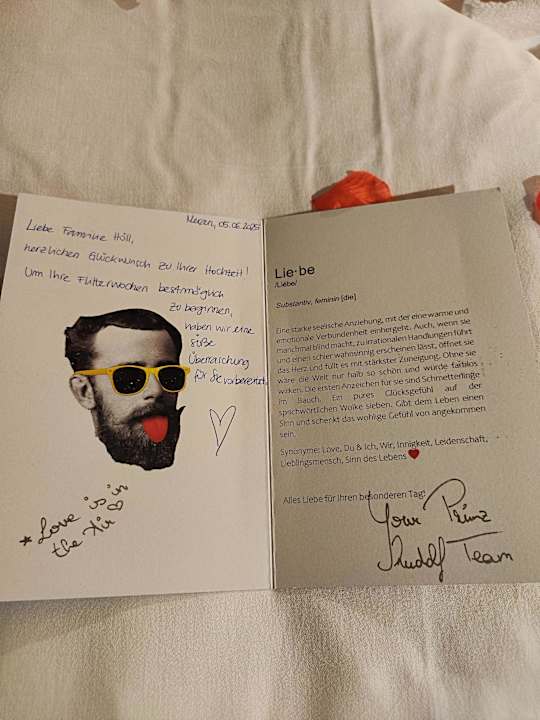 Meran, 05.06.2025
Liebe Familie Höll,
herzlichen Glückwunsch zu Ihrer Hochzeit!
Um Ihre Flitterwochen bestmöglich
zu beginnen,
haben wir eine
süße
Überraschung
für Sie vorbereitet.
* Love is in
the Air
Lie·be
/Liebe/
Substantiv, feminin [die]
Eine starke seelische Anziehung, mit der eine warme und
emotionale Verbundenheit einhergeht. Auch, wenn sie
manchmal blind macht, zu irrationalen Handlungen führt
und einen schier wahnsinnig erscheinen lässt, öffnet sie
das Herz und füllt es mit stärkster Zuneigung. Ohne sie
wäre die Welt nur halb so schön und würde farblos
wirken. Die ersten Anzeichen für sie sind Schmetterlinge
im Bauch. Ein pures Glücksgefühl auf der
sprichwörtlichen Wolke sieben. Gibt dem Leben einen
Sinn und schenkt das wohlige Gefühl von angekommen
sein.
Synonyme: Love, Du & Ich, Wir, Innigkeit, Leidenschaft,
Lieblingsmensch, Sinn des Lebens ❤
Alles Liebe für Ihren besonderen Tag!
Your Prinz
Rudolf Team